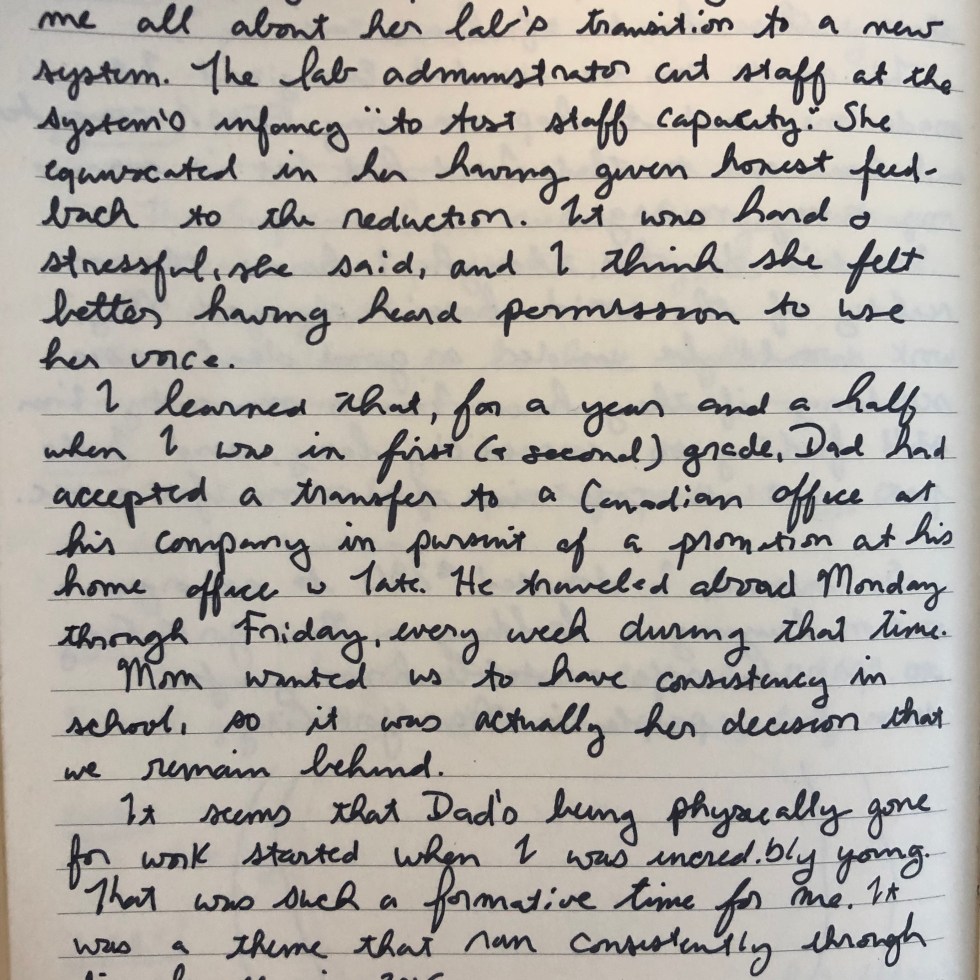 me all about her lab's transition to a new
system. The lab administrator cut staff at the
system's infancy "to test staff capacity." She
equivocated in her having given honest feed-
back to the reduction. It was hard &
stressful, she said, and I think she felt
better having heard permission to use
her voice.
I learned that, for a year and a half
when I was in first (& second) grade, Dad had
accepted a transfer to a Canadian office at
his company in pursuit of a promotion at his
home office state. He traveled abroad Monday
through Friday, every week during that time.
Mom wanted us to have consistency in
school, so it was actually her decision that
we remain behind.
It seems that Dad's being physically gone
for work started when I was incredibly young.
That was such a formative time for me. It
was a theme that ran consistently through